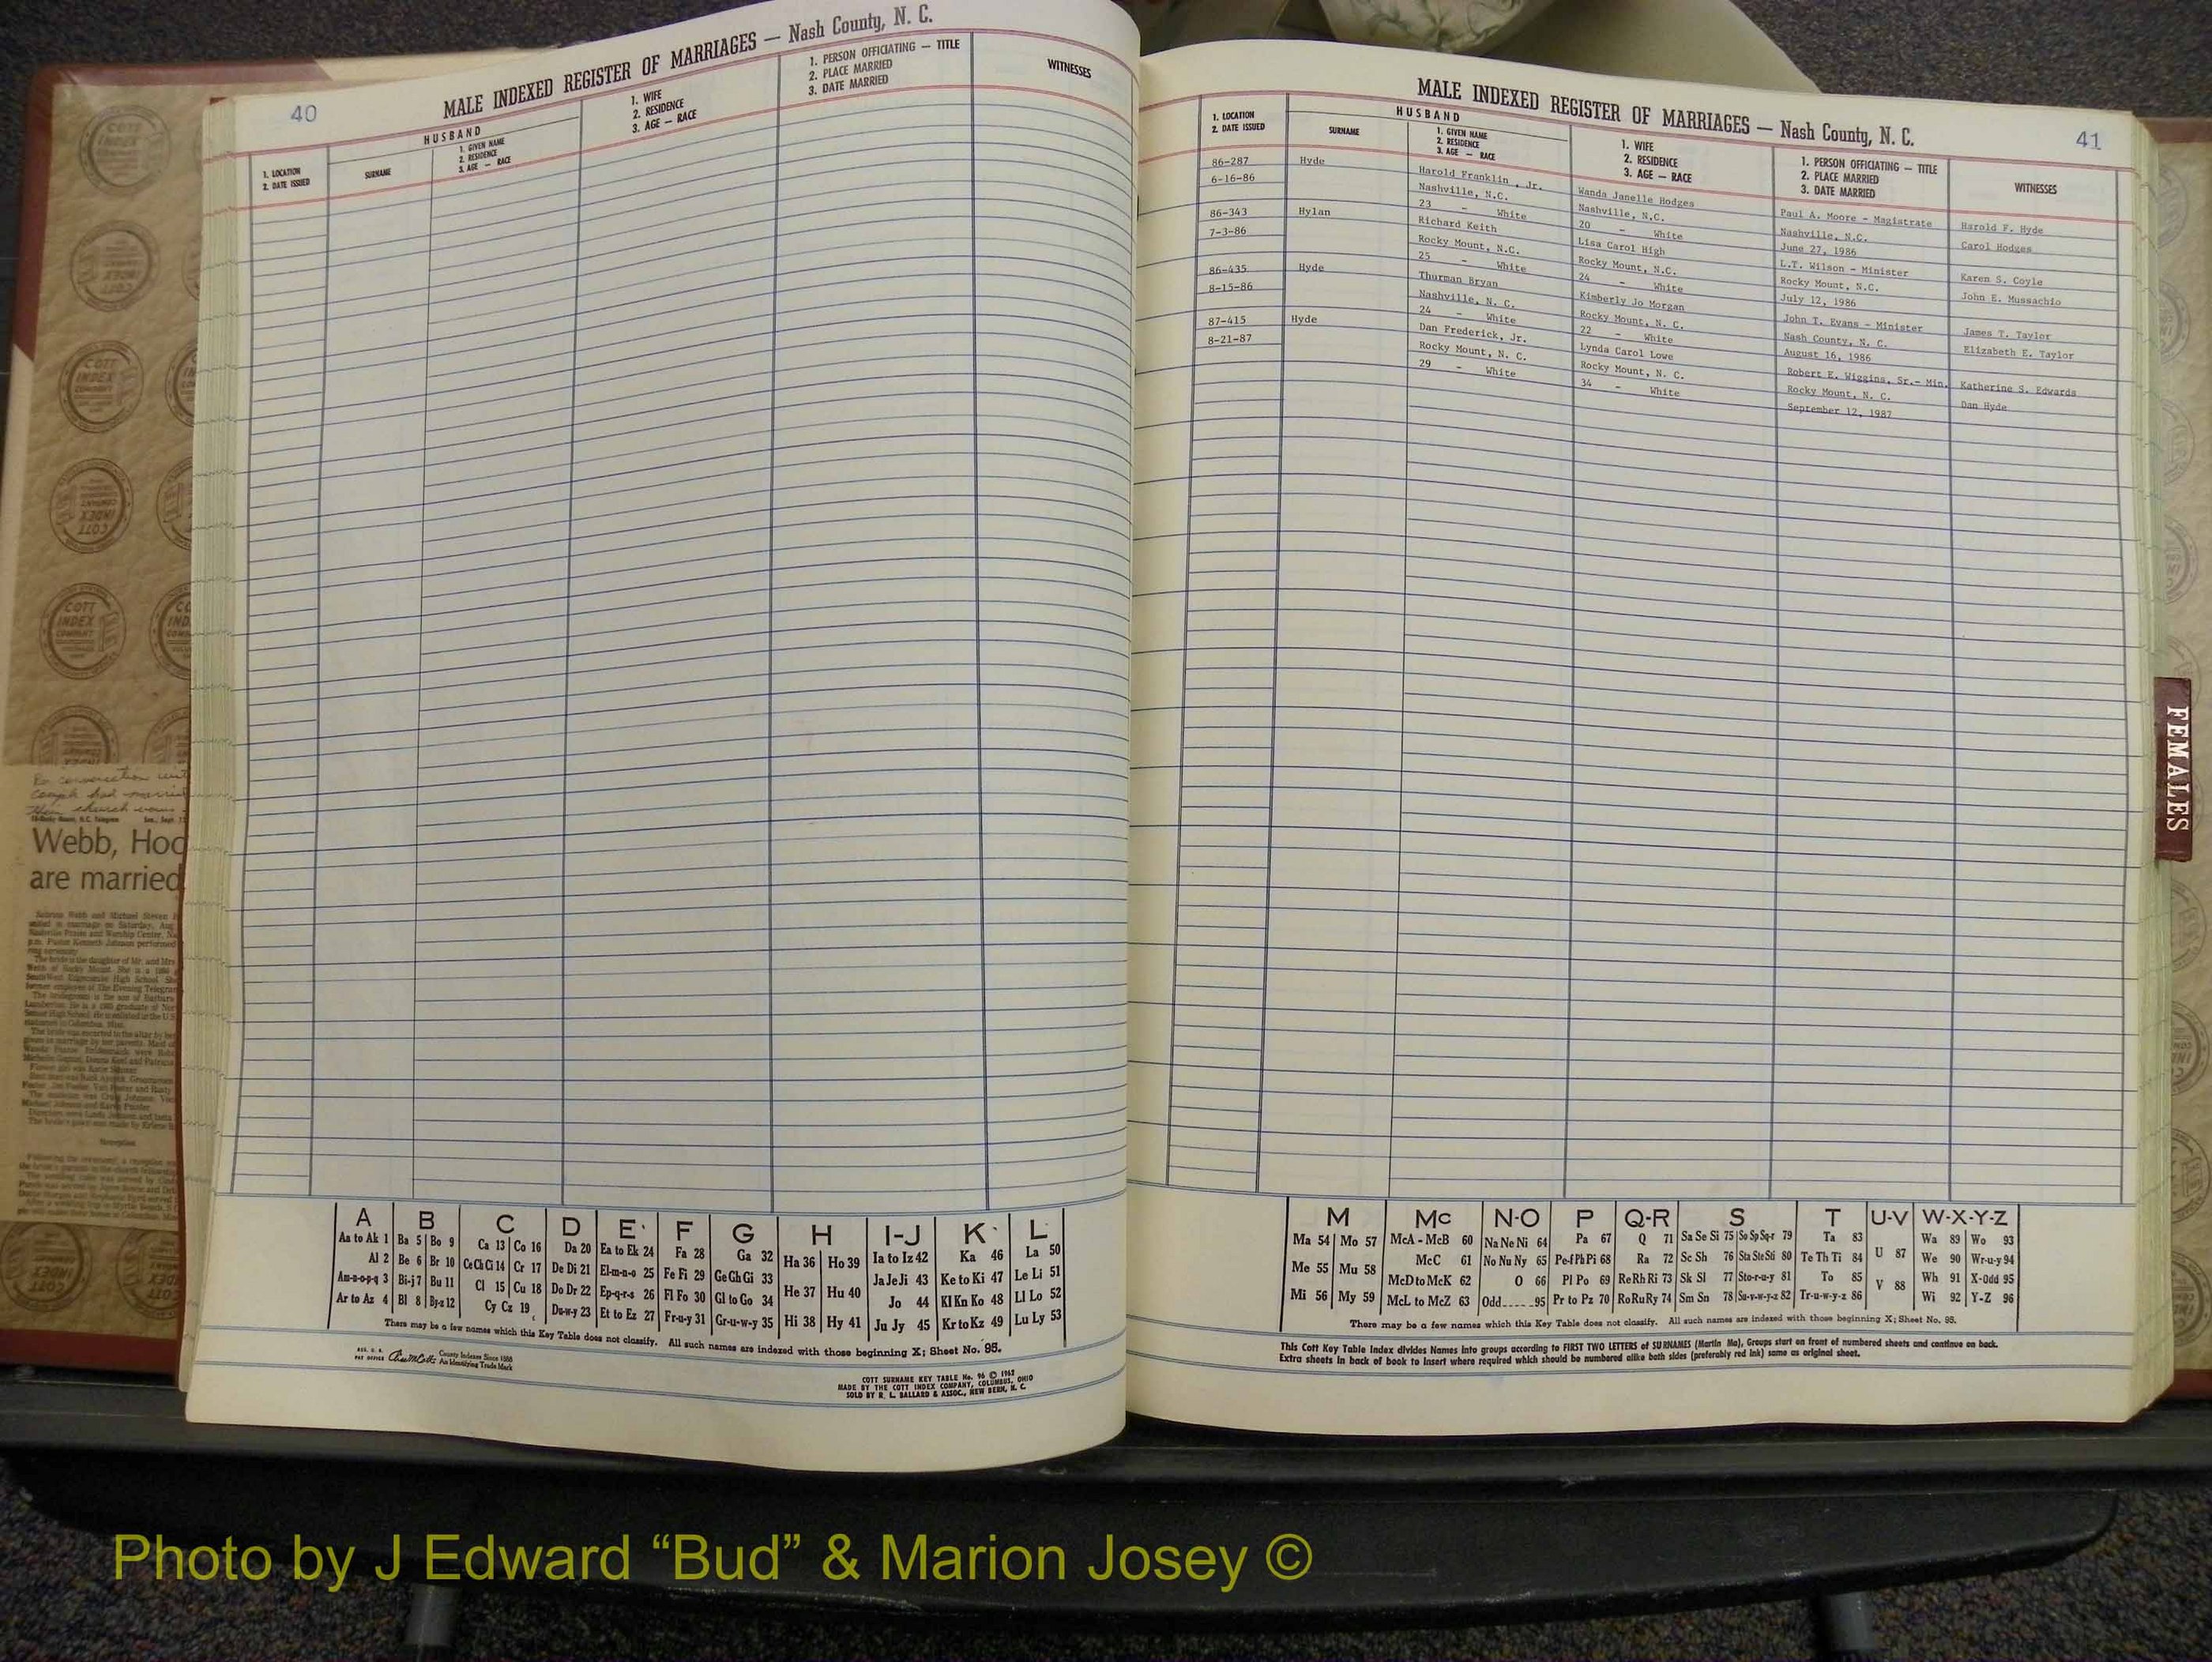 40
MALE INDEXED REGISTER OF MARRIAGES — Nash County, N. C.
1. LOCATION
2. DATE ISSUED
HUSBAND
SURNAME
1. GIVEN NAME
2. RESIDENCE
3. AGE — RACE
1. WIFE
2. RESIDENCE
3. AGE — RACE
1. PERSON OFFICIATING — TITLE
2. PLACE MARRIED
3. DATE MARRIED
WITNESSES
Webb, Hoo
are married
A B C D E F G H I-J K L
Aa to Ak 1 Ba 5 Bo 9 Ca 13 Co 16 Da 20 Ea to Ek 24 Fa 28 Ga 32 Ha 36 Ho 39 Ia to Iz 42 Ka 46 La 50
Al 2 Be 6 Br 10 Ce Ch Ci 14 Cr 17 De Di 21 El-m-n-o 25 Fe Fi 29 Ge Gh Gi 33 He 37 Hu 40 Ja Je Ji 43 Ke to Ki 47 Le Li 51
Am-n-o-p-q 3 Bi-j 7 Bu 11 Cl 15 Cu 18 Do Dr 22 Ep-q-r-s 26 Fl Fo 30 Gl to Go 34 Hi 38 Hy 41 Jo 44 Kl Kn Ko 48 Ll Lo 52
Ar to Az 4 Bl 8 By-z 12 Cy Cz 19 Du-w-y 23 Et to Ez 27 Fr-u-y 31 Gr-u-w-y 35 Ju Jy 45 Kr to Kz 49 Lu Ly 53
There may be a few names which this Key Table does not classify. All such names are indexed with those beginning X; Sheet No. 95.
County Indexes Since 1888
An Identifying Trade Mark
COTT SURNAME KEY TABLE No. 96 © 1963
MADE BY THE COTT INDEX COMPANY, COLUMBUS, OHIO
SOLD BY R. L. BALLARD & ASSOC., NEW BERN, N. C.
MALE INDEXED REGISTER OF MARRIAGES — Nash County, N. C.
41
1. LOCATION
2. DATE ISSUED
HUSBAND
SURNAME
1. GIVEN NAME
2. RESIDENCE
3. AGE — RACE
1. WIFE
2. RESIDENCE
3. AGE — RACE
1. PERSON OFFICIATING — TITLE
2. PLACE MARRIED
3. DATE MARRIED
WITNESSES
86-287 Hyde Harold Franklin, Jr. Wanda Janelle Hodges Paul A. Moore - Magistrate Harold F. Hyde
6-16-86 Nashville, N.C. Nashville, N.C. Nashville, N.C. Carol Hodges
23 - White 20 - White June 27, 1986
86-343 Hylan Richard Keith Lisa Carol High L.T. Wilson - Minister Karen S. Coyle
7-3-86 Rocky Mount, N.C. Rocky Mount, N.C. Rocky Mount, N.C. John E. Mussachio
25 - White 24 - White July 12, 1986
86-435 Hyde Thurman Bryan Kimberly Jo Morgan John T. Evans - Minister James T. Taylor
8-15-86 Nashville, N. C. Rocky Mount, N. C. Nash County, N. C. Elizabeth E. Taylor
24 - White 22 - White August 16, 1986
87-415 Hyde Dan Frederick, Jr. Lynda Carol Lowe Robert E. Wiggins, Sr.- Min. Katherine S. Edwards
8-21-87 Rocky Mount, N. C. Rocky Mount, N. C. Rocky Mount, N. C. Dan Hyde
29 - White 34 - White September 12, 1987
FEMALES
M Mc N-O P Q-R S T U-V W-X-Y-Z
Ma 54 Mo 57 McA - McB 60 Na Ne Ni 64 Pa 67 Q 71 Sa Se Si 75 So Sp Sq-r 79 Ta 83 U 87 Wa 89 Wo 93
Me 55 Mu 58 McC 61 No Nu Ny 65 Pe-f Ph Pi 68 Ra 72 Sc Sh 76 Sta Ste Sti 80 Te Th Ti 84 V 88 We 90 Wr-u-y 94
Mi 56 My 59 McD to McK 62 O 66 Pl Po 69 Re Rh Ri 73 Sk Sl 77 Sto-r-u-y 81 To 85 Wh 91 X-Odd 95
McL to McZ 63 Odd 95 Pr to Pz 70 Ro Ru Ry 74 Sm Sn 78 Su-v-w-y-z 82 Tr-u-w-y-z 86 Wi 92 Y-Z 96
There may be a few names which this Key Table does not classify. All such names are indexed with those beginning X; Sheet No. 95.
This Cott Key Table Index divides Names into groups according to FIRST TWO LETTERS of SURNAMES (Martin Ma), Groups start on front of numbered sheets and continue on back.
Extra sheets in back of book to insert where required which should be numbered alike both sides (preferably red ink) same as original sheet.
Photo by J Edward “Bud” & Marion Josey ©